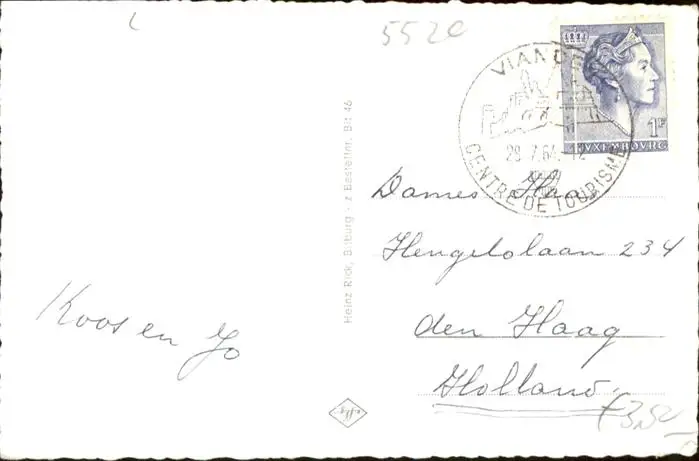 5520
VIANDEN
29.7.64.-12
CENTRE DE TOURISME
1F
LUXEMBOURG
Dames Haas
Hengelolaan 234
den Haag
Holland.
Koos en Jo
Heinz Rick, Bitburg - z Bestellnr. Bit 46
effg
f3,50